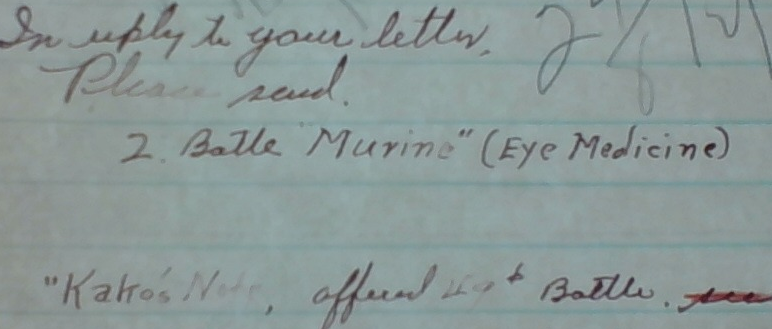 In reply to your letter,
Please send.
2. Botle "Murine" (Eye Medicine)
"Kato's Note, offered Bottle.